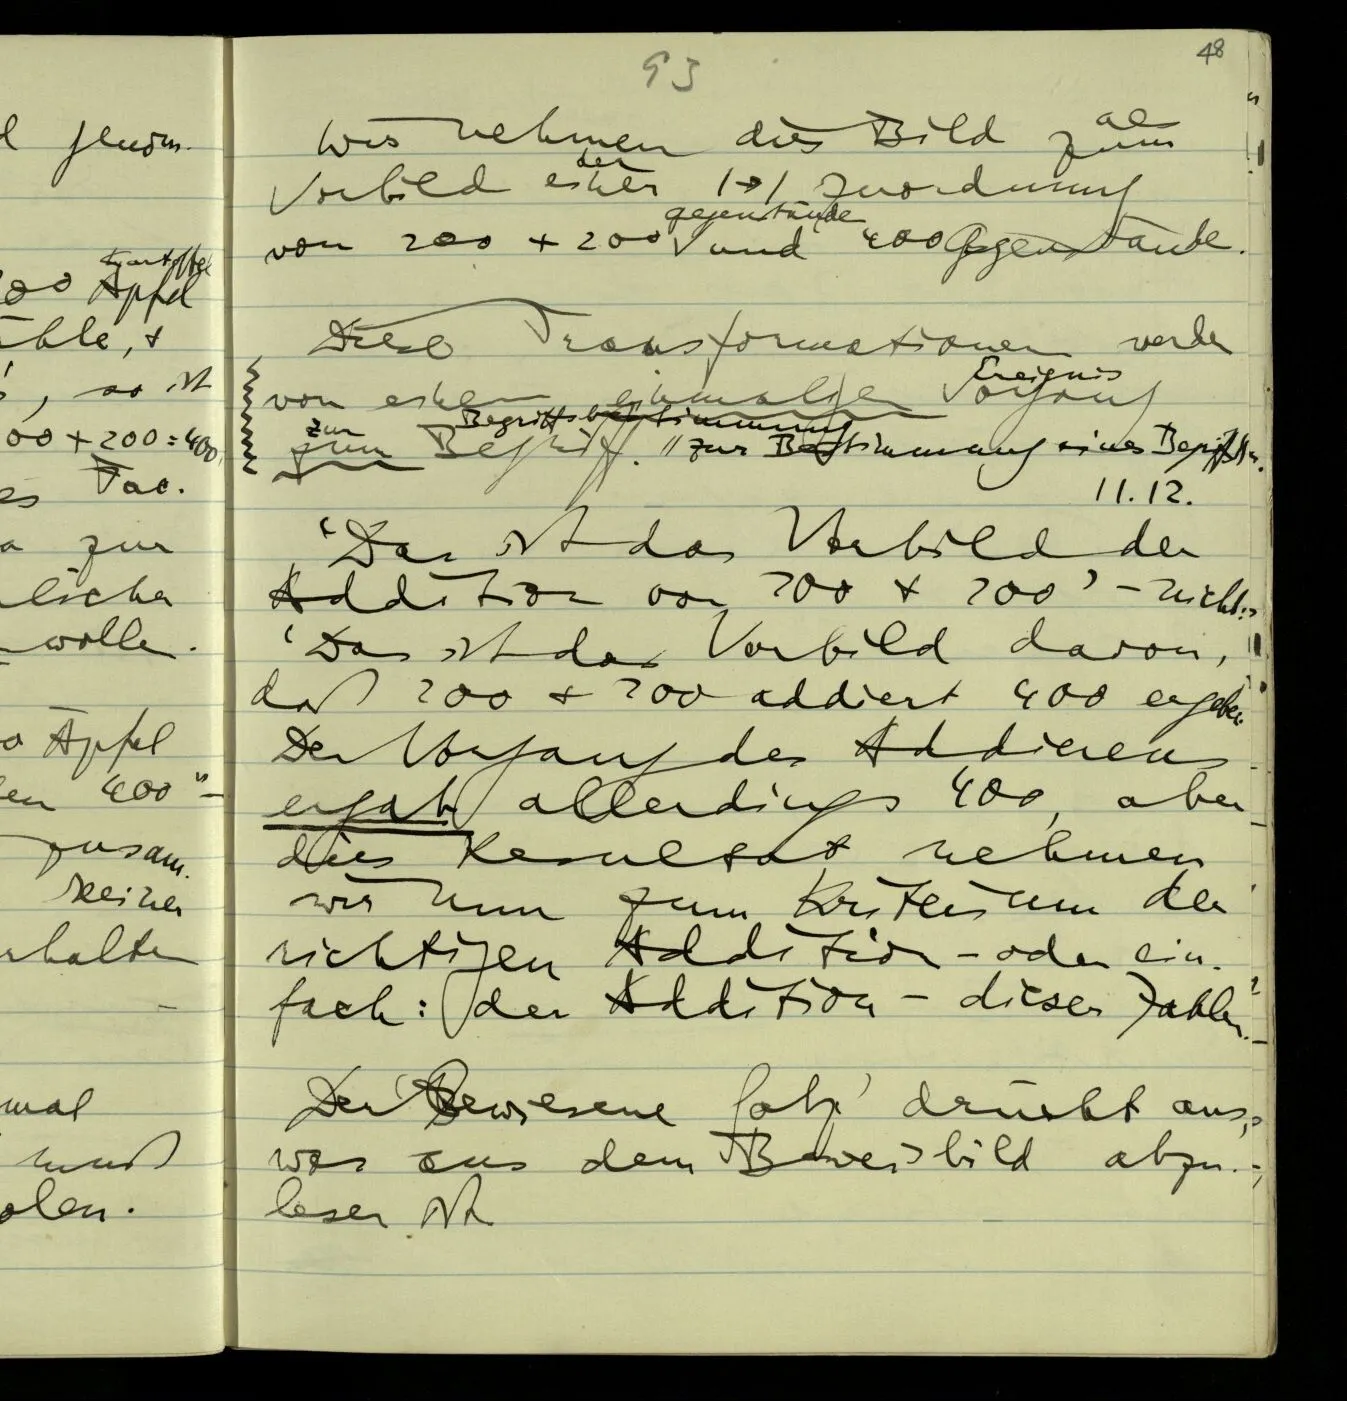 93
48
d genom-
Wir nehmen dies Bild zum als
Vorbild einer der 1→1 Zuordnung
von 200 + 200 Gegenstände und 400 Gegenstände.
Kartoffel
200 Äpfel
Diese Transformationen werden
von einem einmaligen Vorgang Ereignis
zum Begriff. zur Begriffsbestimmung // zur Bestimmung eines Begriffs
so ist
200 + 200 = 400
11.12.
es Tac.
'Das ist das Vorbild der
Addition von 200 + 200' – nicht:
'Das ist das Vorbild davon,
daß 200 + 200 addiert 400 ergeben
Der Vorgang des Addierens
ergab allerdings 400, aber
dies Resultat nehmen
wir nun zum Kriterium der
richtigen Addition – oder ein-
fach: der Addition – dieser Zahlen.
zur
wolle.
Äpfel
400" –
zusam-
keinen
Der 'bewiesene Satz' drückt aus,
was aus dem Beweisbild abzu-
lesen ist
mal
muß